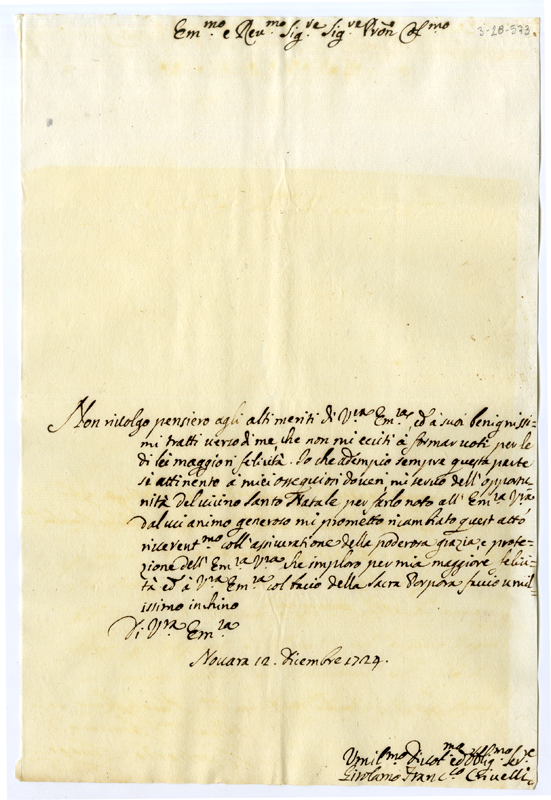 Em.mo e Reu.mo Sig.re Sig.re Pron Col.mo
3-28-573
Non riuolgo pensiero agli alti meriti di V.ra Em.za, ed à suoi benignissi=
mi tratti uerso di me, che non mi ecciti à formar uoti per le
di lei maggiori felicità. Io che adempio sempre questa parte
sì attinente a miei ossequiosi doueri mi seruo dell'opportu=
nità del uicino Santo Natale per farlo noto all'Em.za V.ra
dal cui animo generoso mi prometto ricambiato quest'atto
riuerent.mo coll'assicuratione della poderosa grazia, e prote=
zione dell'Em.za V.ra che imploro per mia maggiore felici=
tà ed à V.ra Em.za col bacio della Sacra Porpora faccio umil=
issimo inchino
Di V.ra Em.za
Nouara 12. Dicembre 1724.
Umil.mo Diuot.mo ed Obblig.mo Ser.re
Girolamo Franc.co